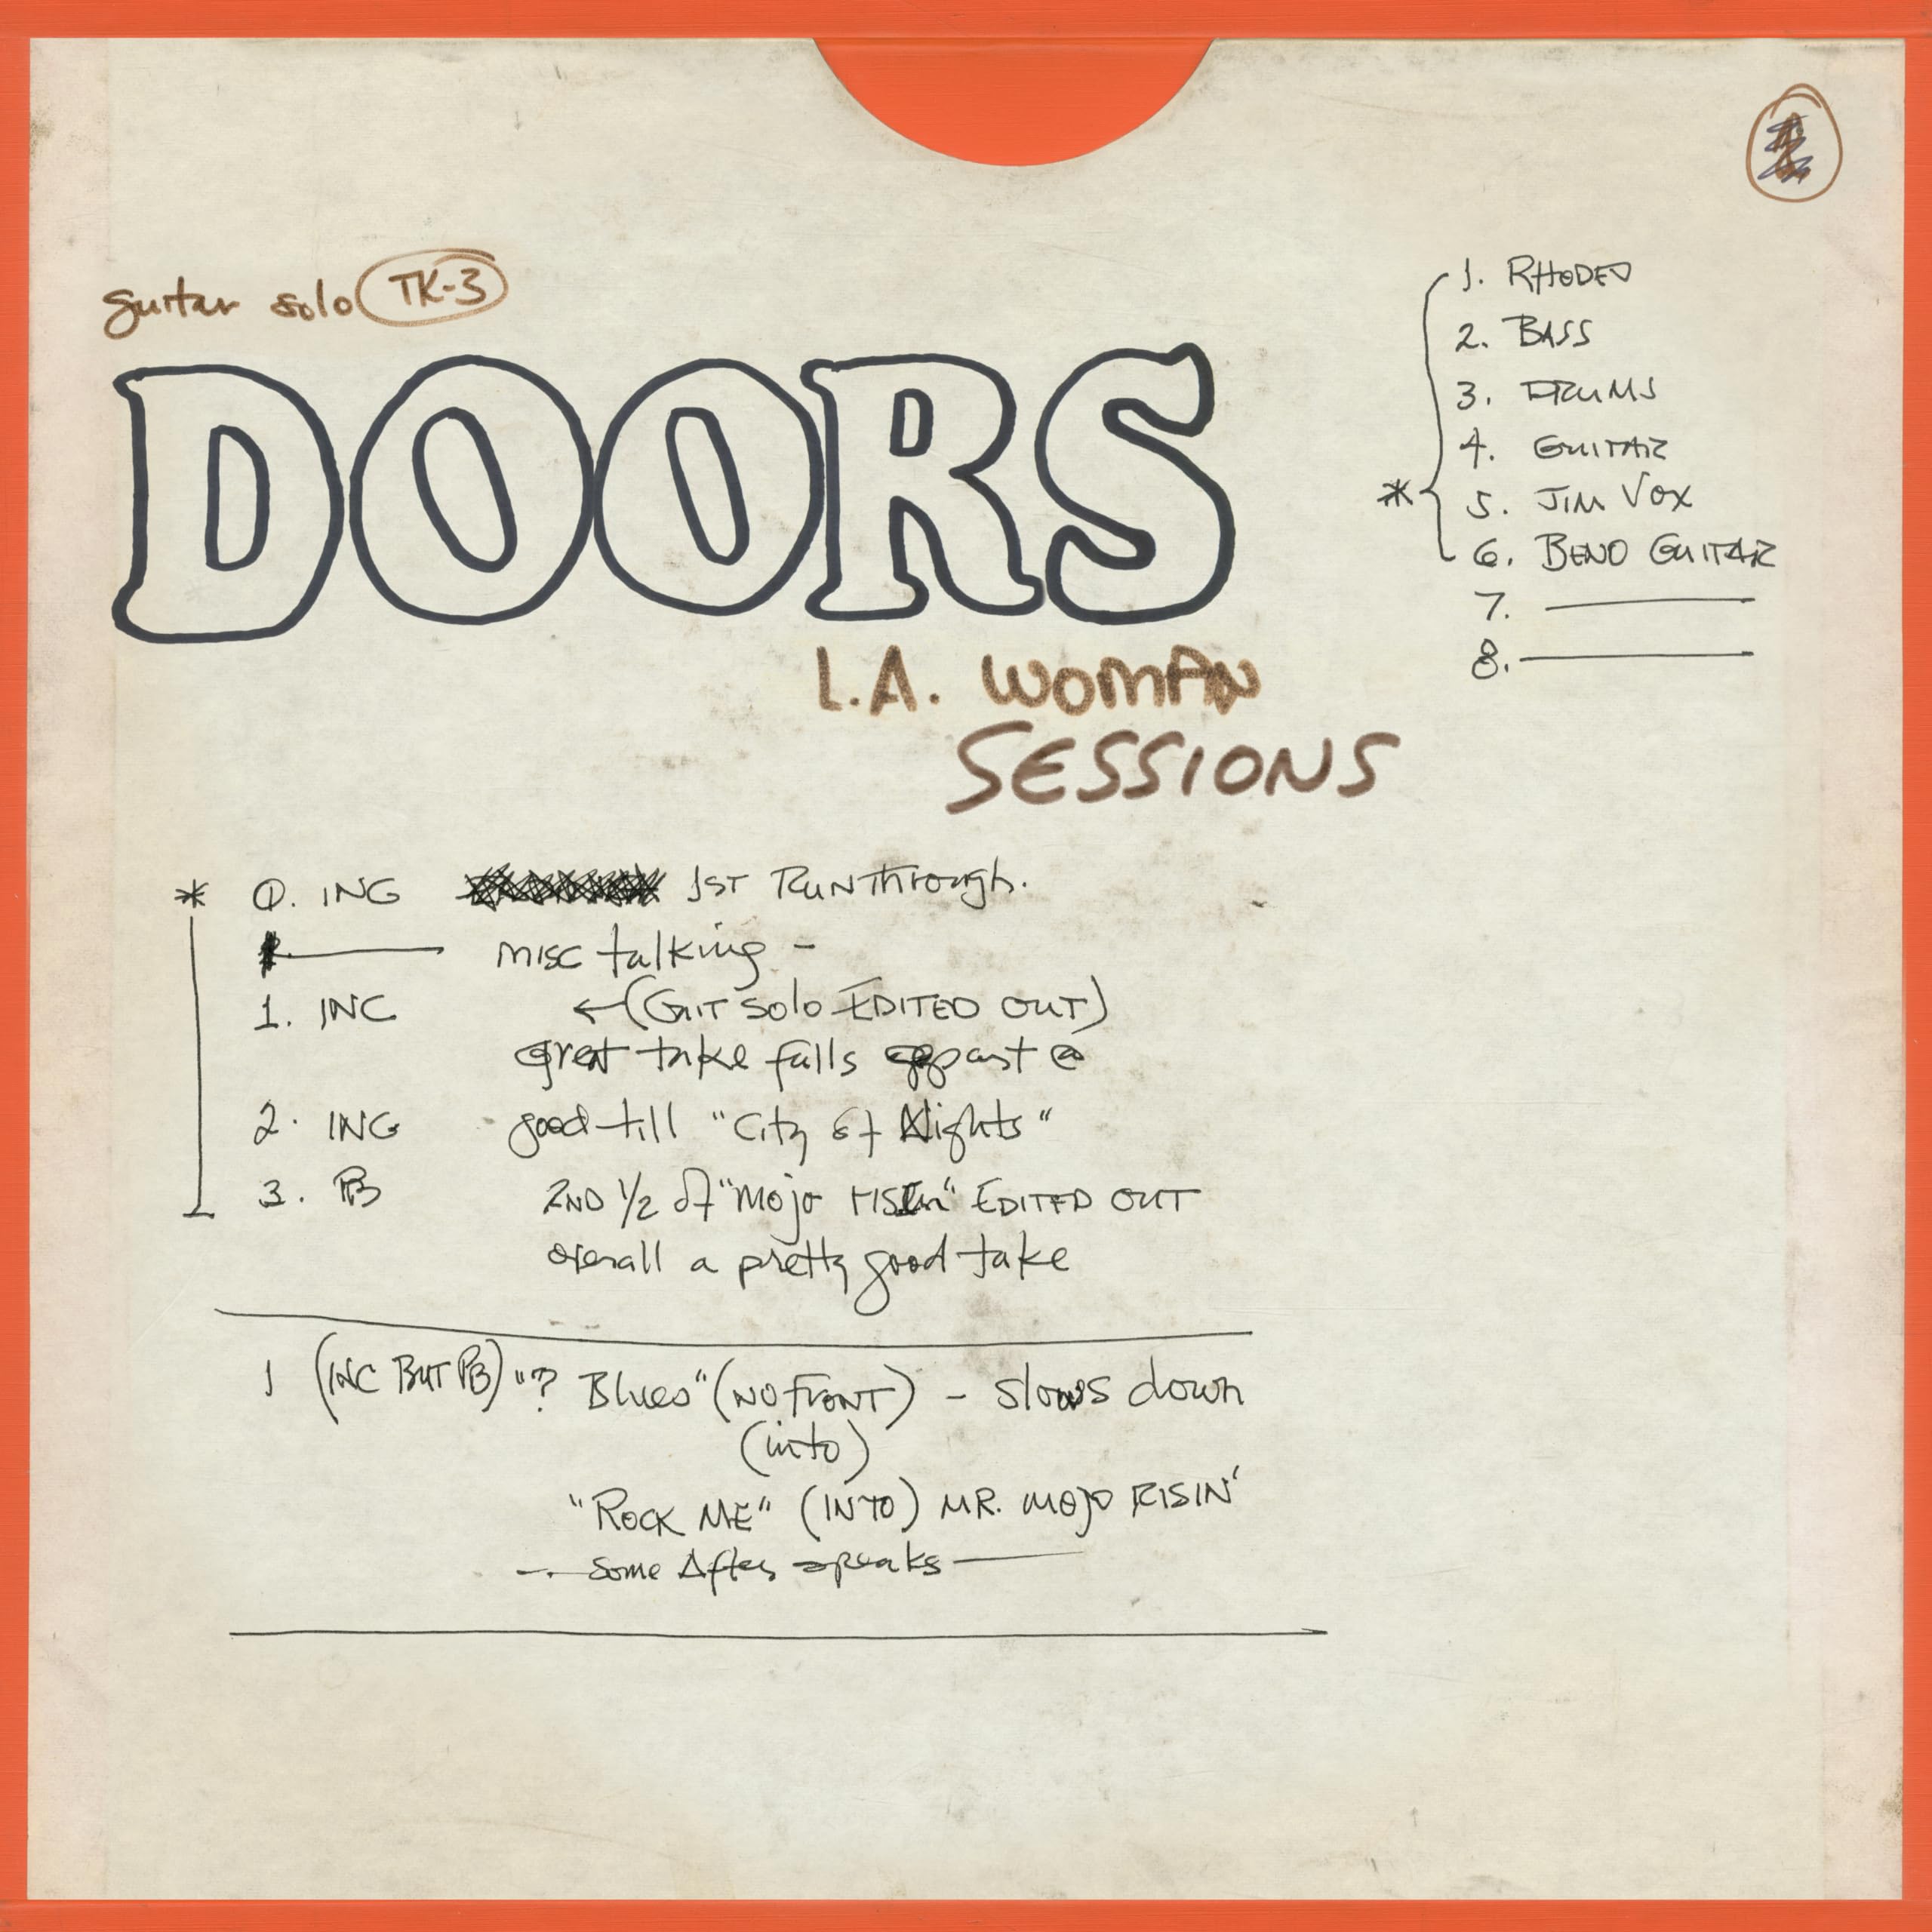 guitar solo TK-3
DOORS
L.A. WOMAN
SESSIONS
* { 1. RHODES
2. BASS
3. DRUMS
4. GUITAR
5. JIM VOX
6. BENO GUITAR
7. ————
8. ————
* 0. INC 1ST RUNThrough.
———— misc talking -
1. INC ←(GIT Solo EDITED OUT)
great take falls appart @
2. INC good till "City of Nights"
3. PB 2ND 1/2 of "Mojo RISEn" EDITED OUT
overall a pretty good take
1 (INC BUT PB) "? Blues" (NO FRONT) - Slows down
(into)
"ROCK ME" (INTO) MR. MOJO RISIN'
—. Some After speaks ——